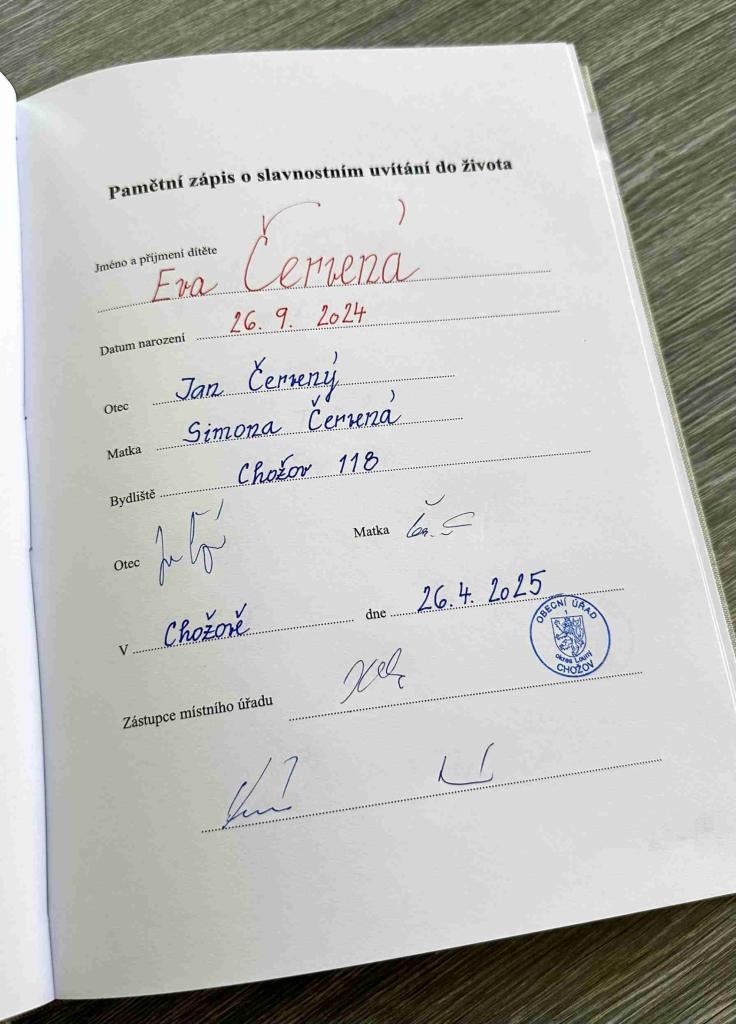 Pamětní zápis o slavnostním uvítání do života
Jméno a příjmení dítěte Eva Červená
Datum narození 26. 9. 2024
Otec Jan Červený
Matka Simona Červená
Bydliště Chožov 118
Otec Matka
V Chožově dne 26.4. 2025
OBECNÍ ÚŘAD
1
okres Louny
CHOŽOV
Zástupce místního úřadu